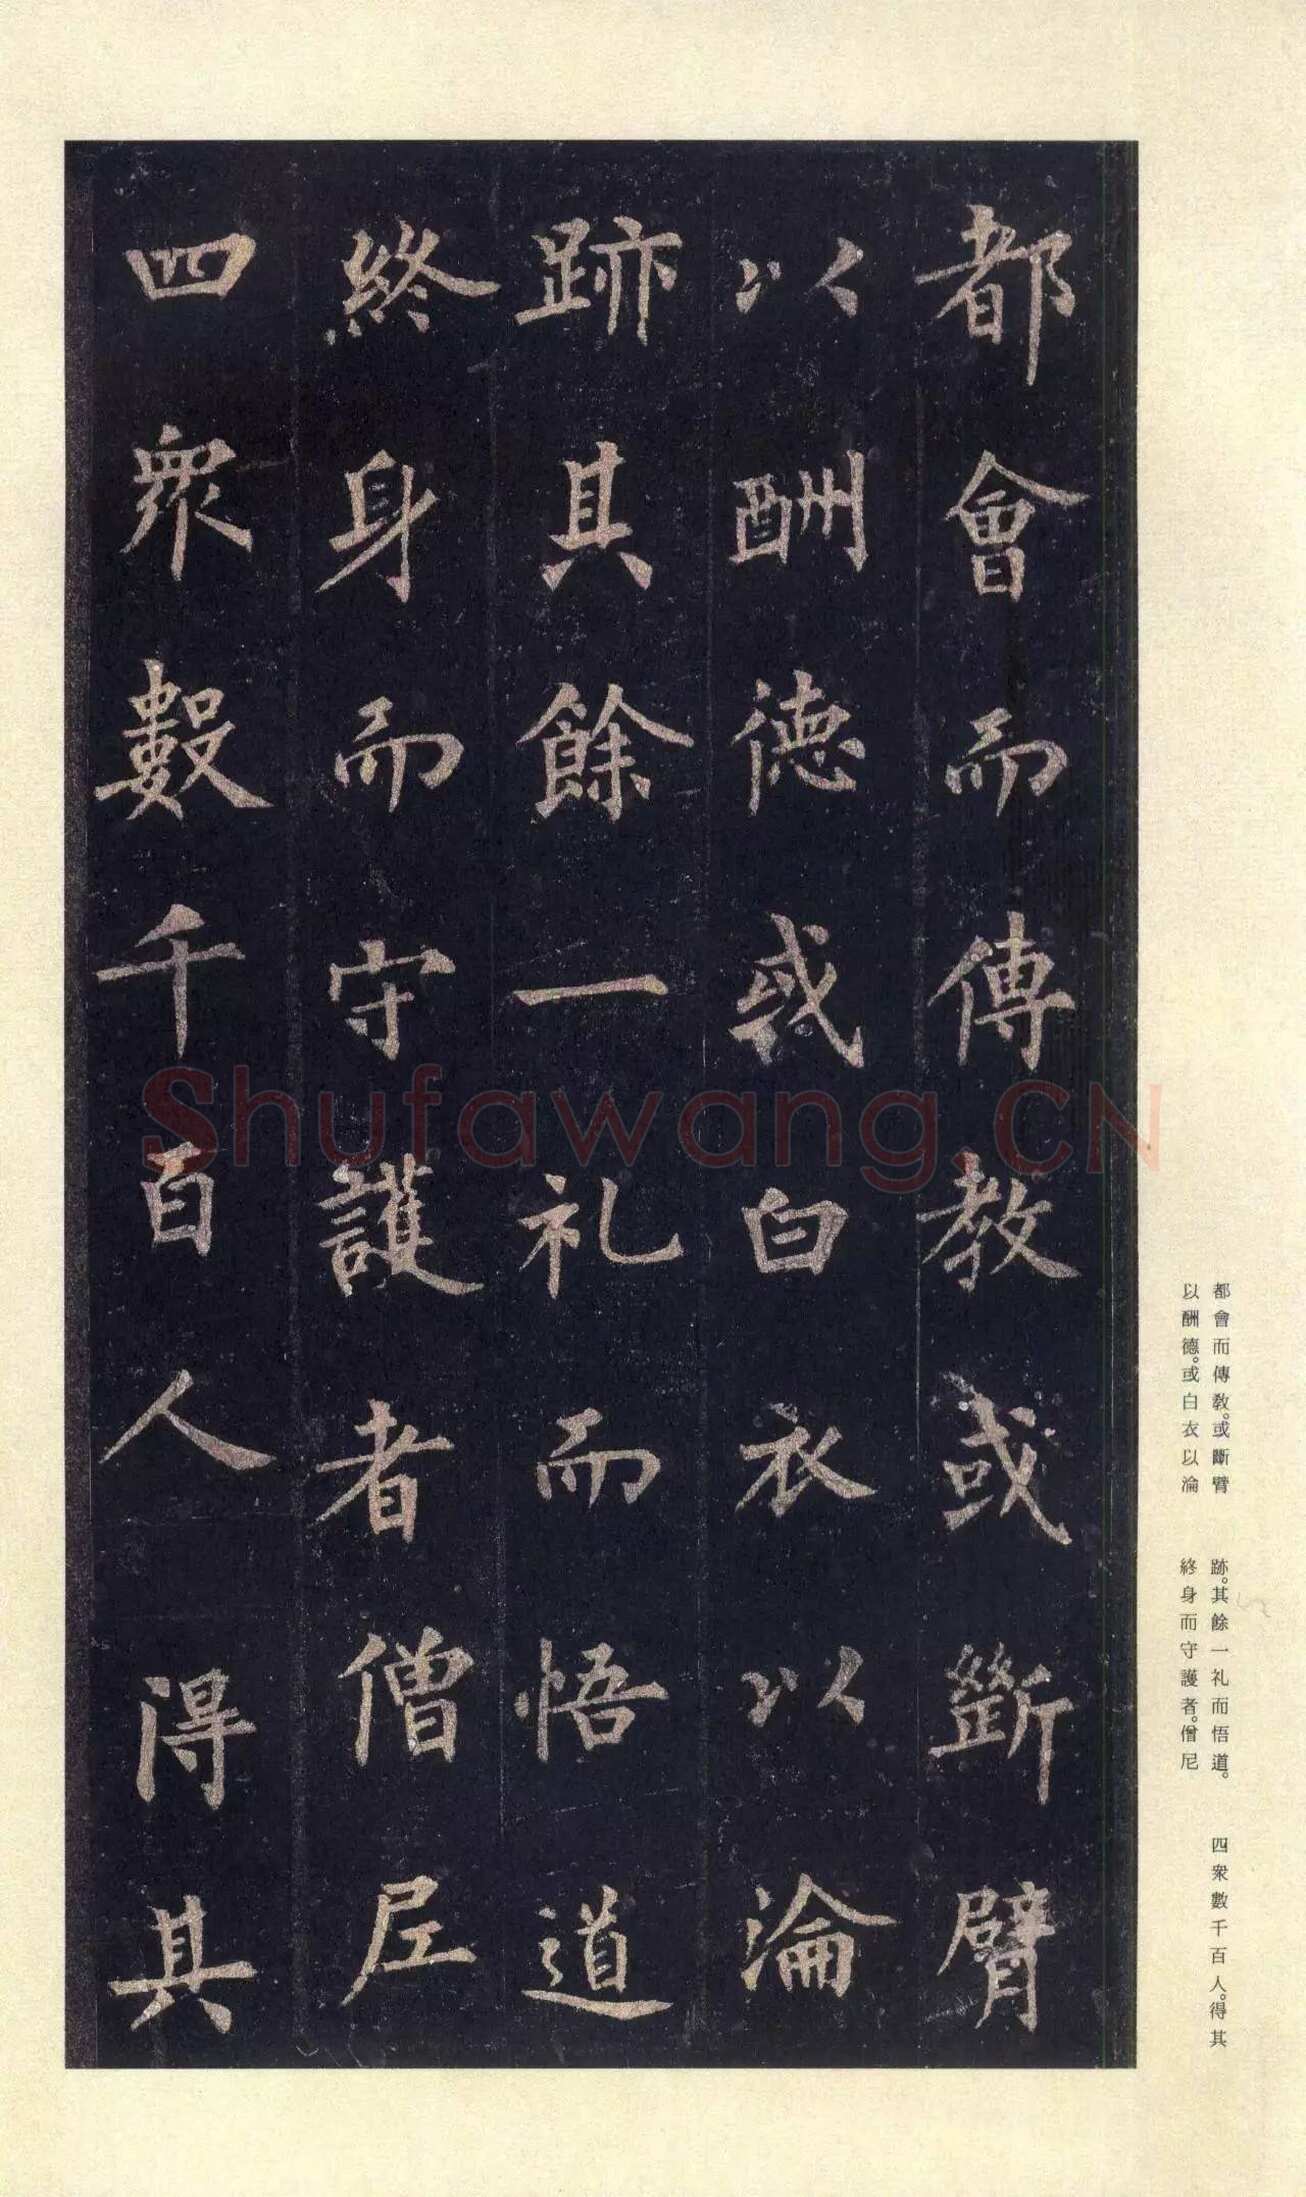 都會而傳教或斷臂
以酬德或白衣以淪
跡其餘一礼而悟道
終身而守護者僧尼
四衆數千百人得其
都會而傳教。或斷臂
以酬德。或白衣以淪
跡。其餘一礼而悟道。
終身而守護者。僧尼
四衆數千百人。得其
Shufawang.CN